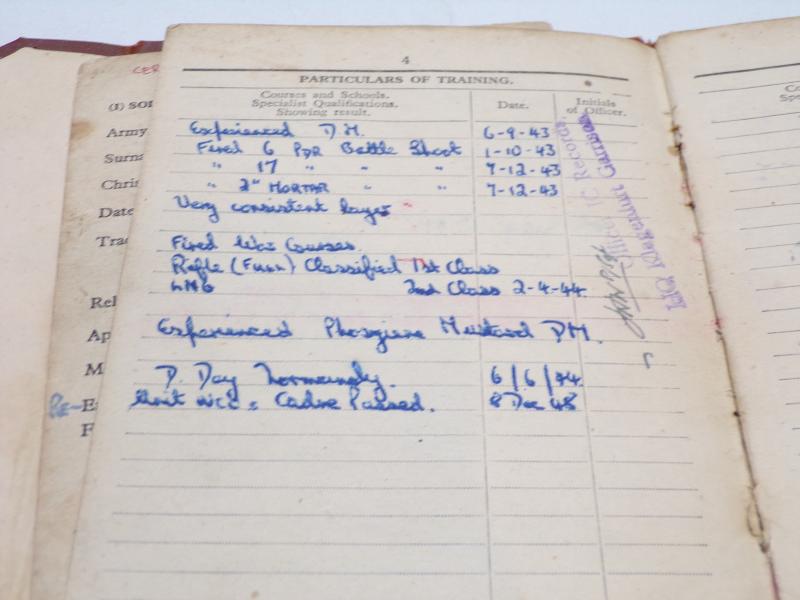 4
PARTICULARS OF TRAINING.
Courses and Schools.
Specialist Qualifications.
Showing result.
Date.
Initials
of Officer.
Experienced D.M. 6-9-43
Fired 6 PDR Battle Shoot 1-10-43
" 17 " " " 7-12-43
" 2" MORTAR " " 7-12-43
Very consistent layer
Fired War Courses
Rifle (Full) Classified 1st Class
LMG 2nd Class 2-4-44
Experienced Phosgiene Mustard DM.
D. Day Normandy. 6/6/44
Unit NCO's Cadre Passed. 8 Dec 48
Officer IC Records,
HQ Klagenfurt Garrison
CER
(I) SOL
Army
Surna
Chris
Date
Trad
Rel
Ap
M
Re-E
F
Co
Spe